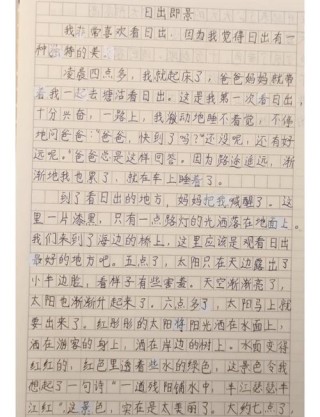 日出即景
我非常喜欢看日出，因为我觉得日出有一
种独特的美。
凌晨四点多，我就起床了，爸爸妈妈就带
着我一起去塘沽看日出。这是我第一次看日出
十分兴奋，一路上，我激动地睡不着觉，不停
地问爸爸：“爸爸，快到了吗？”“还没呢，还有好
远呢。”爸爸总是这样回答。因为路途遥远，渐
渐地我也累了，就在车上睡着了。
到了看日出的地方，妈妈把我喊醒了。这
里一片漆黑，只有一点路灯的光洒落在地面上。
我们来到了海边的桥上，这里应该是观看日出
最好的地方吧。五点了，太阳只在天边露出了
小半边脸，看样子有些害羞。天空渐渐亮了，
太阳也渐渐升起来了。六点多了，太阳马上就
要出来了。红彤彤的太阳将阳光洒在水面上，
洒在游客的身上，洒在岸边的树上。水面变得
红红的，红色里透着些水的绿色，这景色令我
想起了一句诗“一道残阳铺水中，半江瑟瑟半
江红”这景色，实在是太美丽了。大约七点了